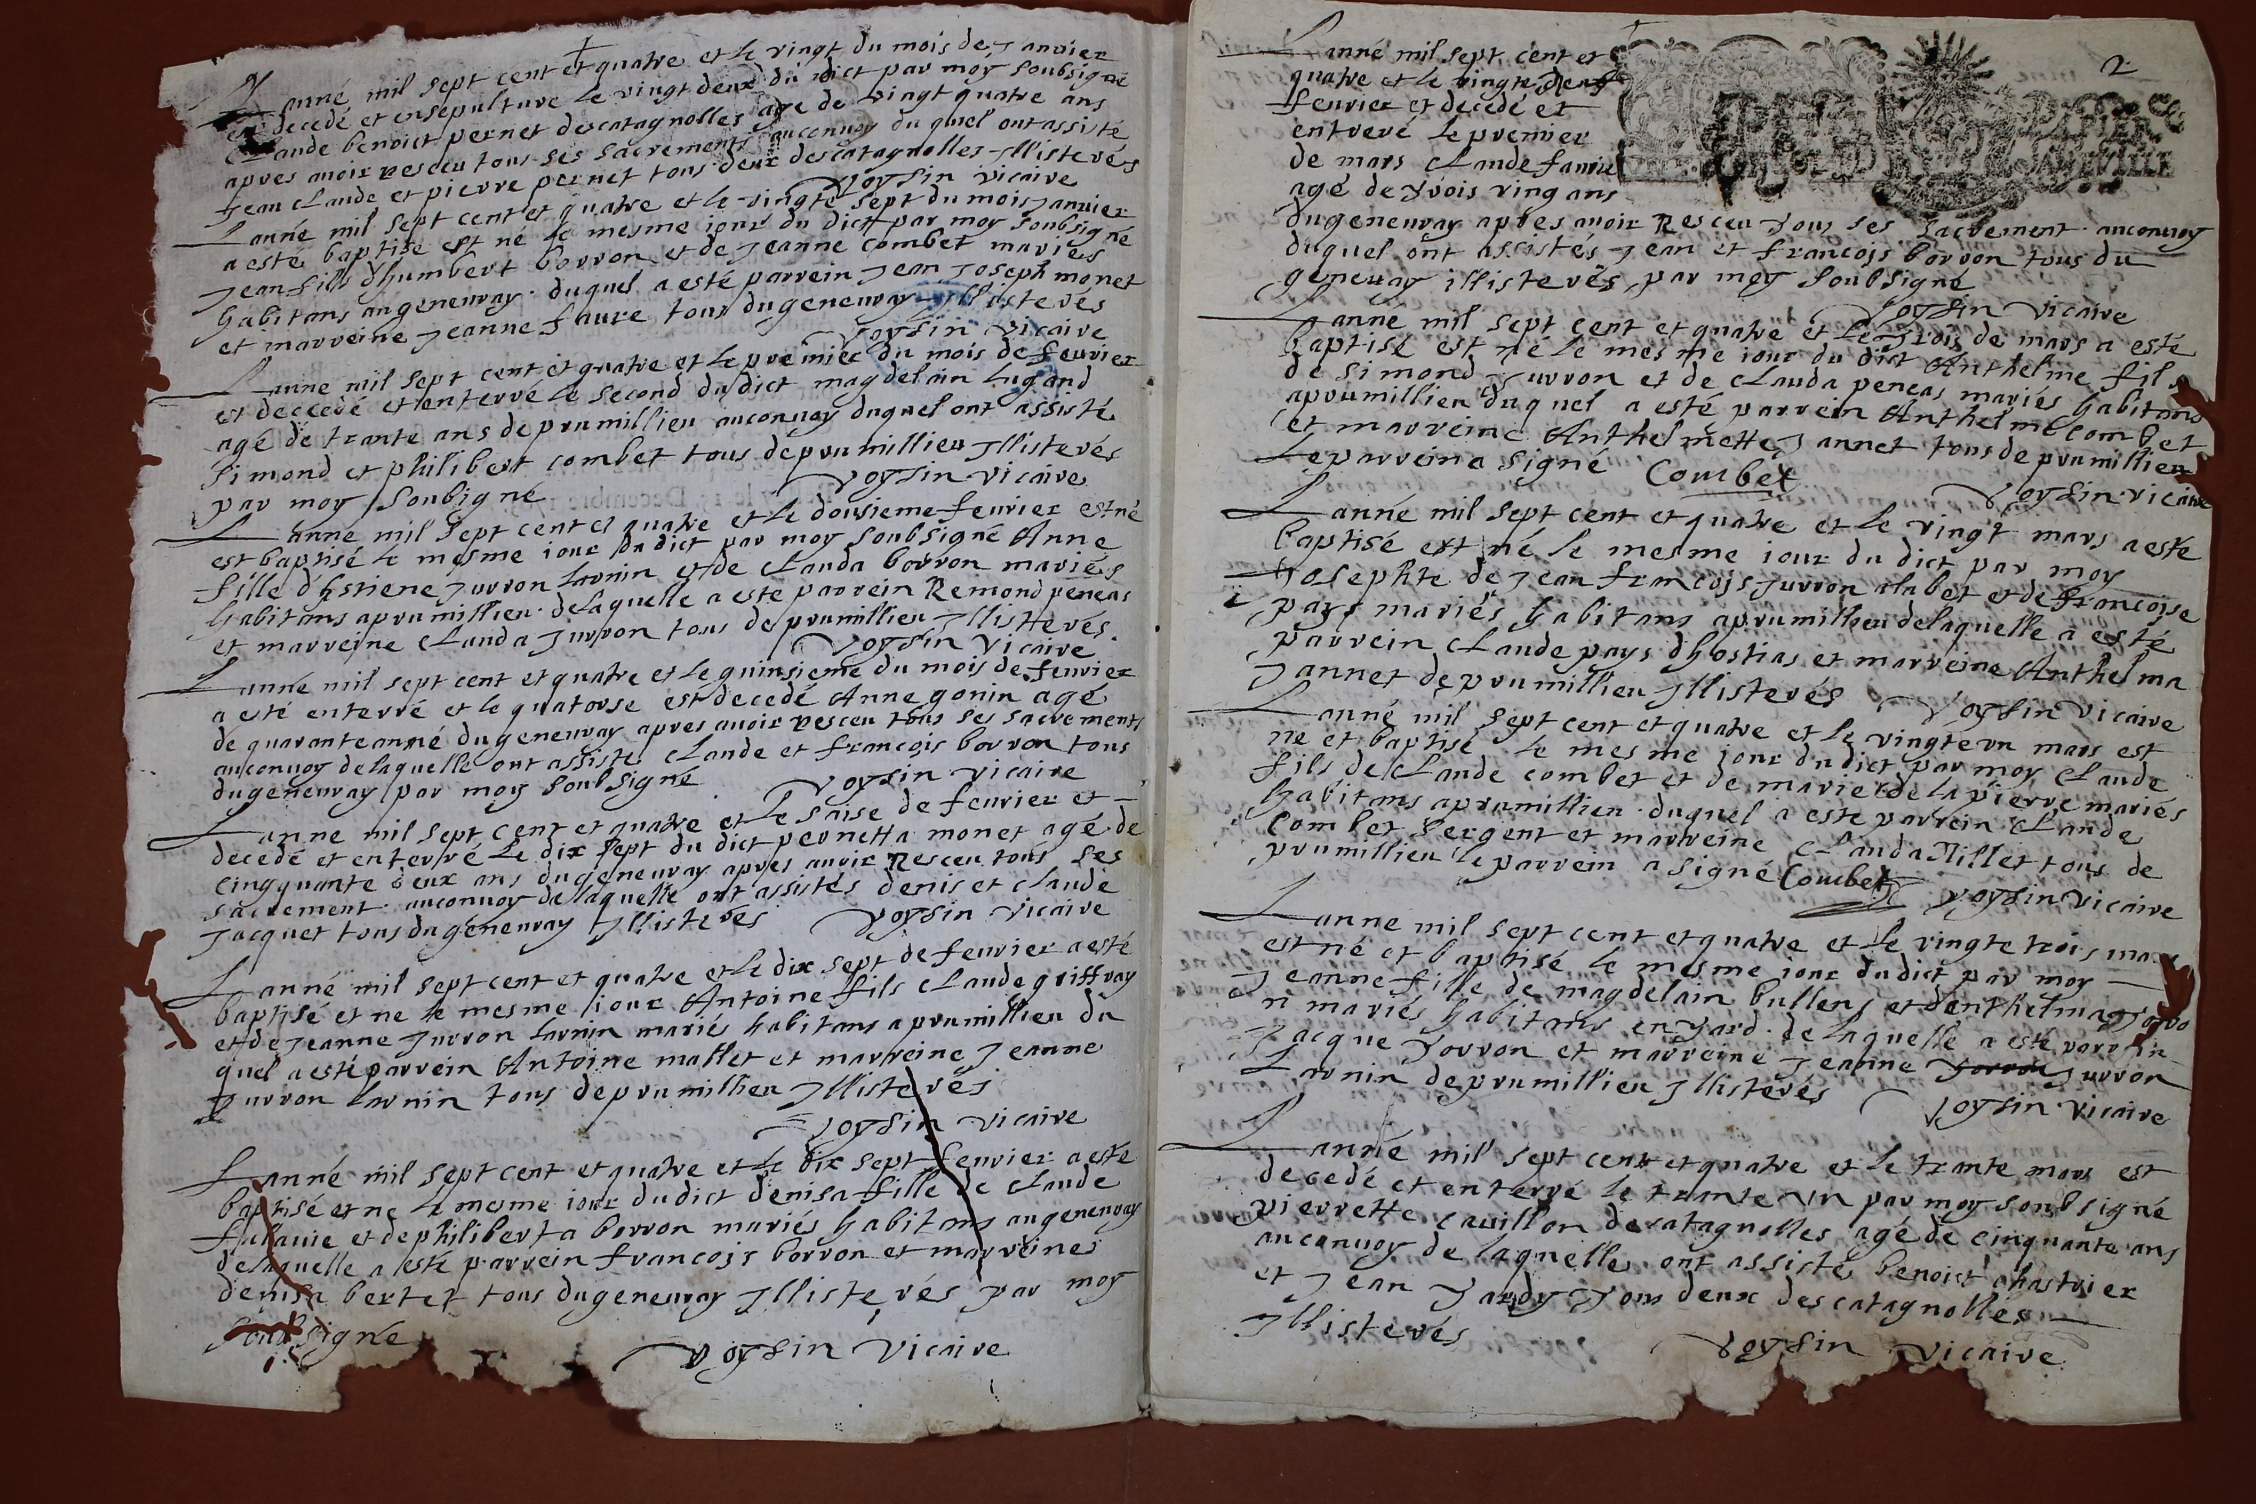 Lanné mil sept cent et quatre et le vingt du mois de Janvier
est decedé et ensepulture le vingt deux du dict par moy soubsigné
Claude benoict pernet descatagnolles age de vingt quatre ans
apres avoir resceu tous ses sacrements auconvoy du quel ont assisté
Jean Claude et pierre pernet tous deux descatagnolles Jllisterés
Voysin vicaire
Lanné mil sept cent et quatre et le vingte sept du mois Janvier
a esté baptisé est né le mesme iour du dict par moy soubsigné
Jean fils dhumbert borron et de Jeanne Combet mariés
habitans augeneuray duquel a esté parrein Jean Joseph monet
et marreine Jeanne faure tous dugeneuray Jllisterés
Voysin vicaire
Lanne mil sept cent et quatre et le premier du mois de feurier
et decedé et enterré le second du dict magdelain lugand
agé de trante ans de prumillieu auconuoy duquel ont assisté
Simond et philibert combet tous deprumillieu Jllisterés
par moy soubigné Voysin vicaire
Lanne mil sept cent et quatre et le dousieme feurier est né
est baptisé le mesme iour du dict par moy soubsigné Anne
fille d'hstiene Jurron larnin et de Clauda borron mariés
habitans aprumillieu delaquelle a este parrein Remond peneas
et marreine Clauda Jurron tous de prumillieu Jllisterés
Voysin vicaire
Lanné mil sept cent et quatre et le quinsieme du mois de feurier
a esté enterré et le quatorse est decedé Anne gonin agé
de quarante anné dugeneuray apres auoir resceu tous ses sacrements
auconuoy delaquelle ont assisté Claude et francois borron tous
dugeneuray par moy soubsigné Voysin vicaire
Lanne mil sept cent et quatre et le saise de feurier et
decedé et enterré le dix sept du dict pernetta monet agé de
cinqquante deux ans dugeneuray apres auoir resceu tous ses
sacrement auconuoy delaquelle ont assistés denis et claude
Jacquet tous dugeneuray Jllisterés Voysin vicaire
Lanné mil sept cent et quatre et le dix sept de feurier a esté
baptisé et ne le mesme iour Antoine fils Claude griffray
et de Jeanne Jurron larnin mariés habitans aprumillieu du
quel a esté parrein Antoine mallet et marreine Jeanne
Jurron larnin tous deprumillieu Jllisterés
Voysin vicaire
Lanné mil sept cent et quatre et le dix sept feurier a esté
baptisé et ne le mesme iour du dict denisa fille de claude
et dephiliberta borron mariés habitans augeneuray
delaquelle a esté parrein francois borron et marreine
denisa bertet tous dugeneuray Jllisterés par moy
soubsigné
Voysin vicaire
2
Lanné mil sept cent et
quatre et le vingte neuf
feurier et decedé et
entreré le premier
de mars Claude faurie
agé de trois ving ans
dugeneuray apres auoir resceu tous ses sacrement auconuoy
duquel ont assistés Jean et francois borron tous du
geneuray illisterés par moy soubsigné
Voysin vicaire
Lanne mil sept cent et quatre et le trois de mars a esté
baptisé est né le mesme iour du dict Anthelme fils
de Simond Jurron et de Clauda peneas mariés habitans
aprumillieu duquel a esté parrein Anthelme Combet
et marreine Anthelmette Jannet tous de prumillieu
Le parrein a signé Combet
Voysin vicaire
Lanné mil sept cent et quatre et le vingt mars a esté
baptisé est né le mesme iour du dict par moy
Josephte de Jean francois Jurron alabet et de francoise
pays mariés habitans aprumillieu delaquelle a esté
parrein Claude pays dhostias et marreine Anthelma
Jannet de prumillieu Jllisterés Voysin vicaire
Lanné mil sept cent et quatre et le vingte vn mars est
né et baptisé le mesme iour du dict par moy Claude
fils de Claude combet et de marie delapierre mariés
habitans aprumillieu duquel a este parrein Claude
Combet sergent et marreine Clauda Millet tous de
prumillieu le parrein a signé Combet Voysin vicaire
Lanne mil sept cent et quatre et le vingte trois mars
est né et baptisé le mesme iour du dict par moy
Jeanne fille de magdelain bullens et denthelma Jorro
n mariés habitans en Jard de laquelle a esté parrein
Jacque Jorron et marreine Jeanne Jorron Jurron
Larnin deprumillieu Jllisterés
Voysin vicaire
Lanné mil sept cent et quatre et le trante mars est
decedé et enterré le trante vn par moy soubsigné
pierrette cauillon descatagnolles agé de cinquante ans
auconuoy de laquelle ont assisté benoict chastrier
et Jean Jardy tous deux descatagnolles
Jllisterés
Voysin vicaire